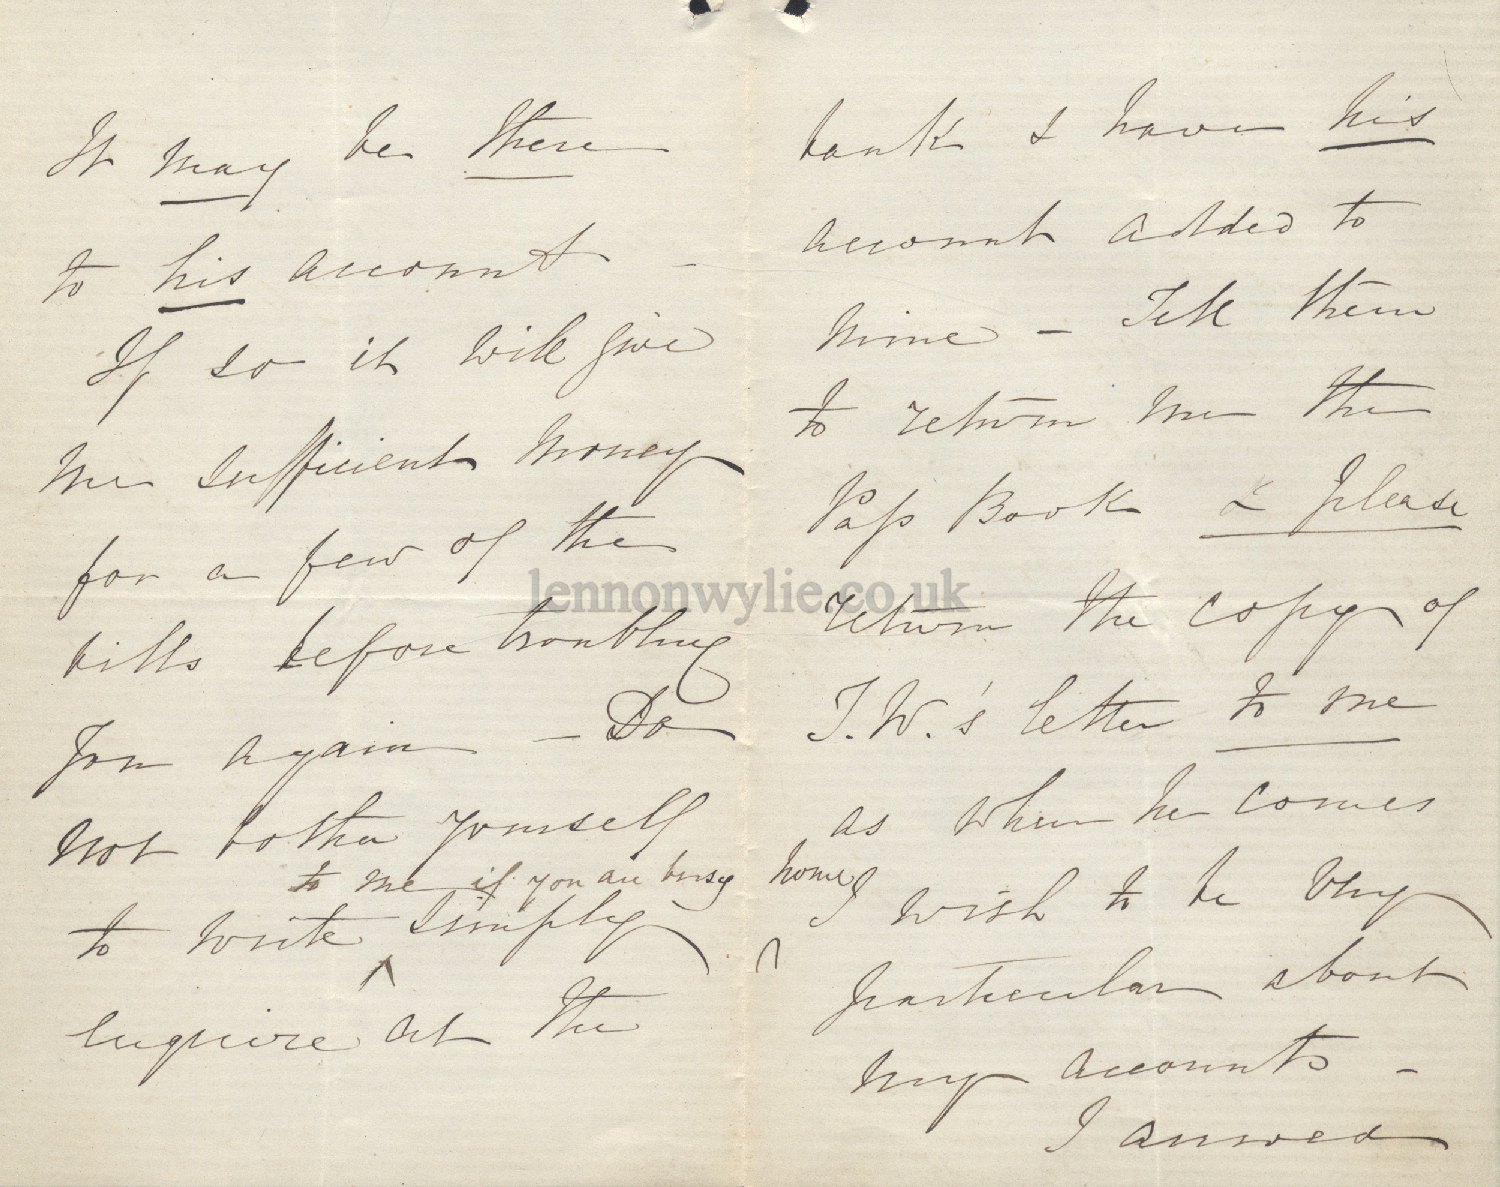 It may be there
to his account -
If so it will give
me sufficient money
for a few of the
bills before troubling
you again - Do
not bother yourself
to me if you are busy
to write simply
enquire at the
bank & have his
account added to
mine - Tell them
to return me the
Pass Book & please
return the copy of
T.W.'s letter to me
as when he comes
home I wish to be very
particular about
my accounts -
I answed
lennonwylie.co.uk